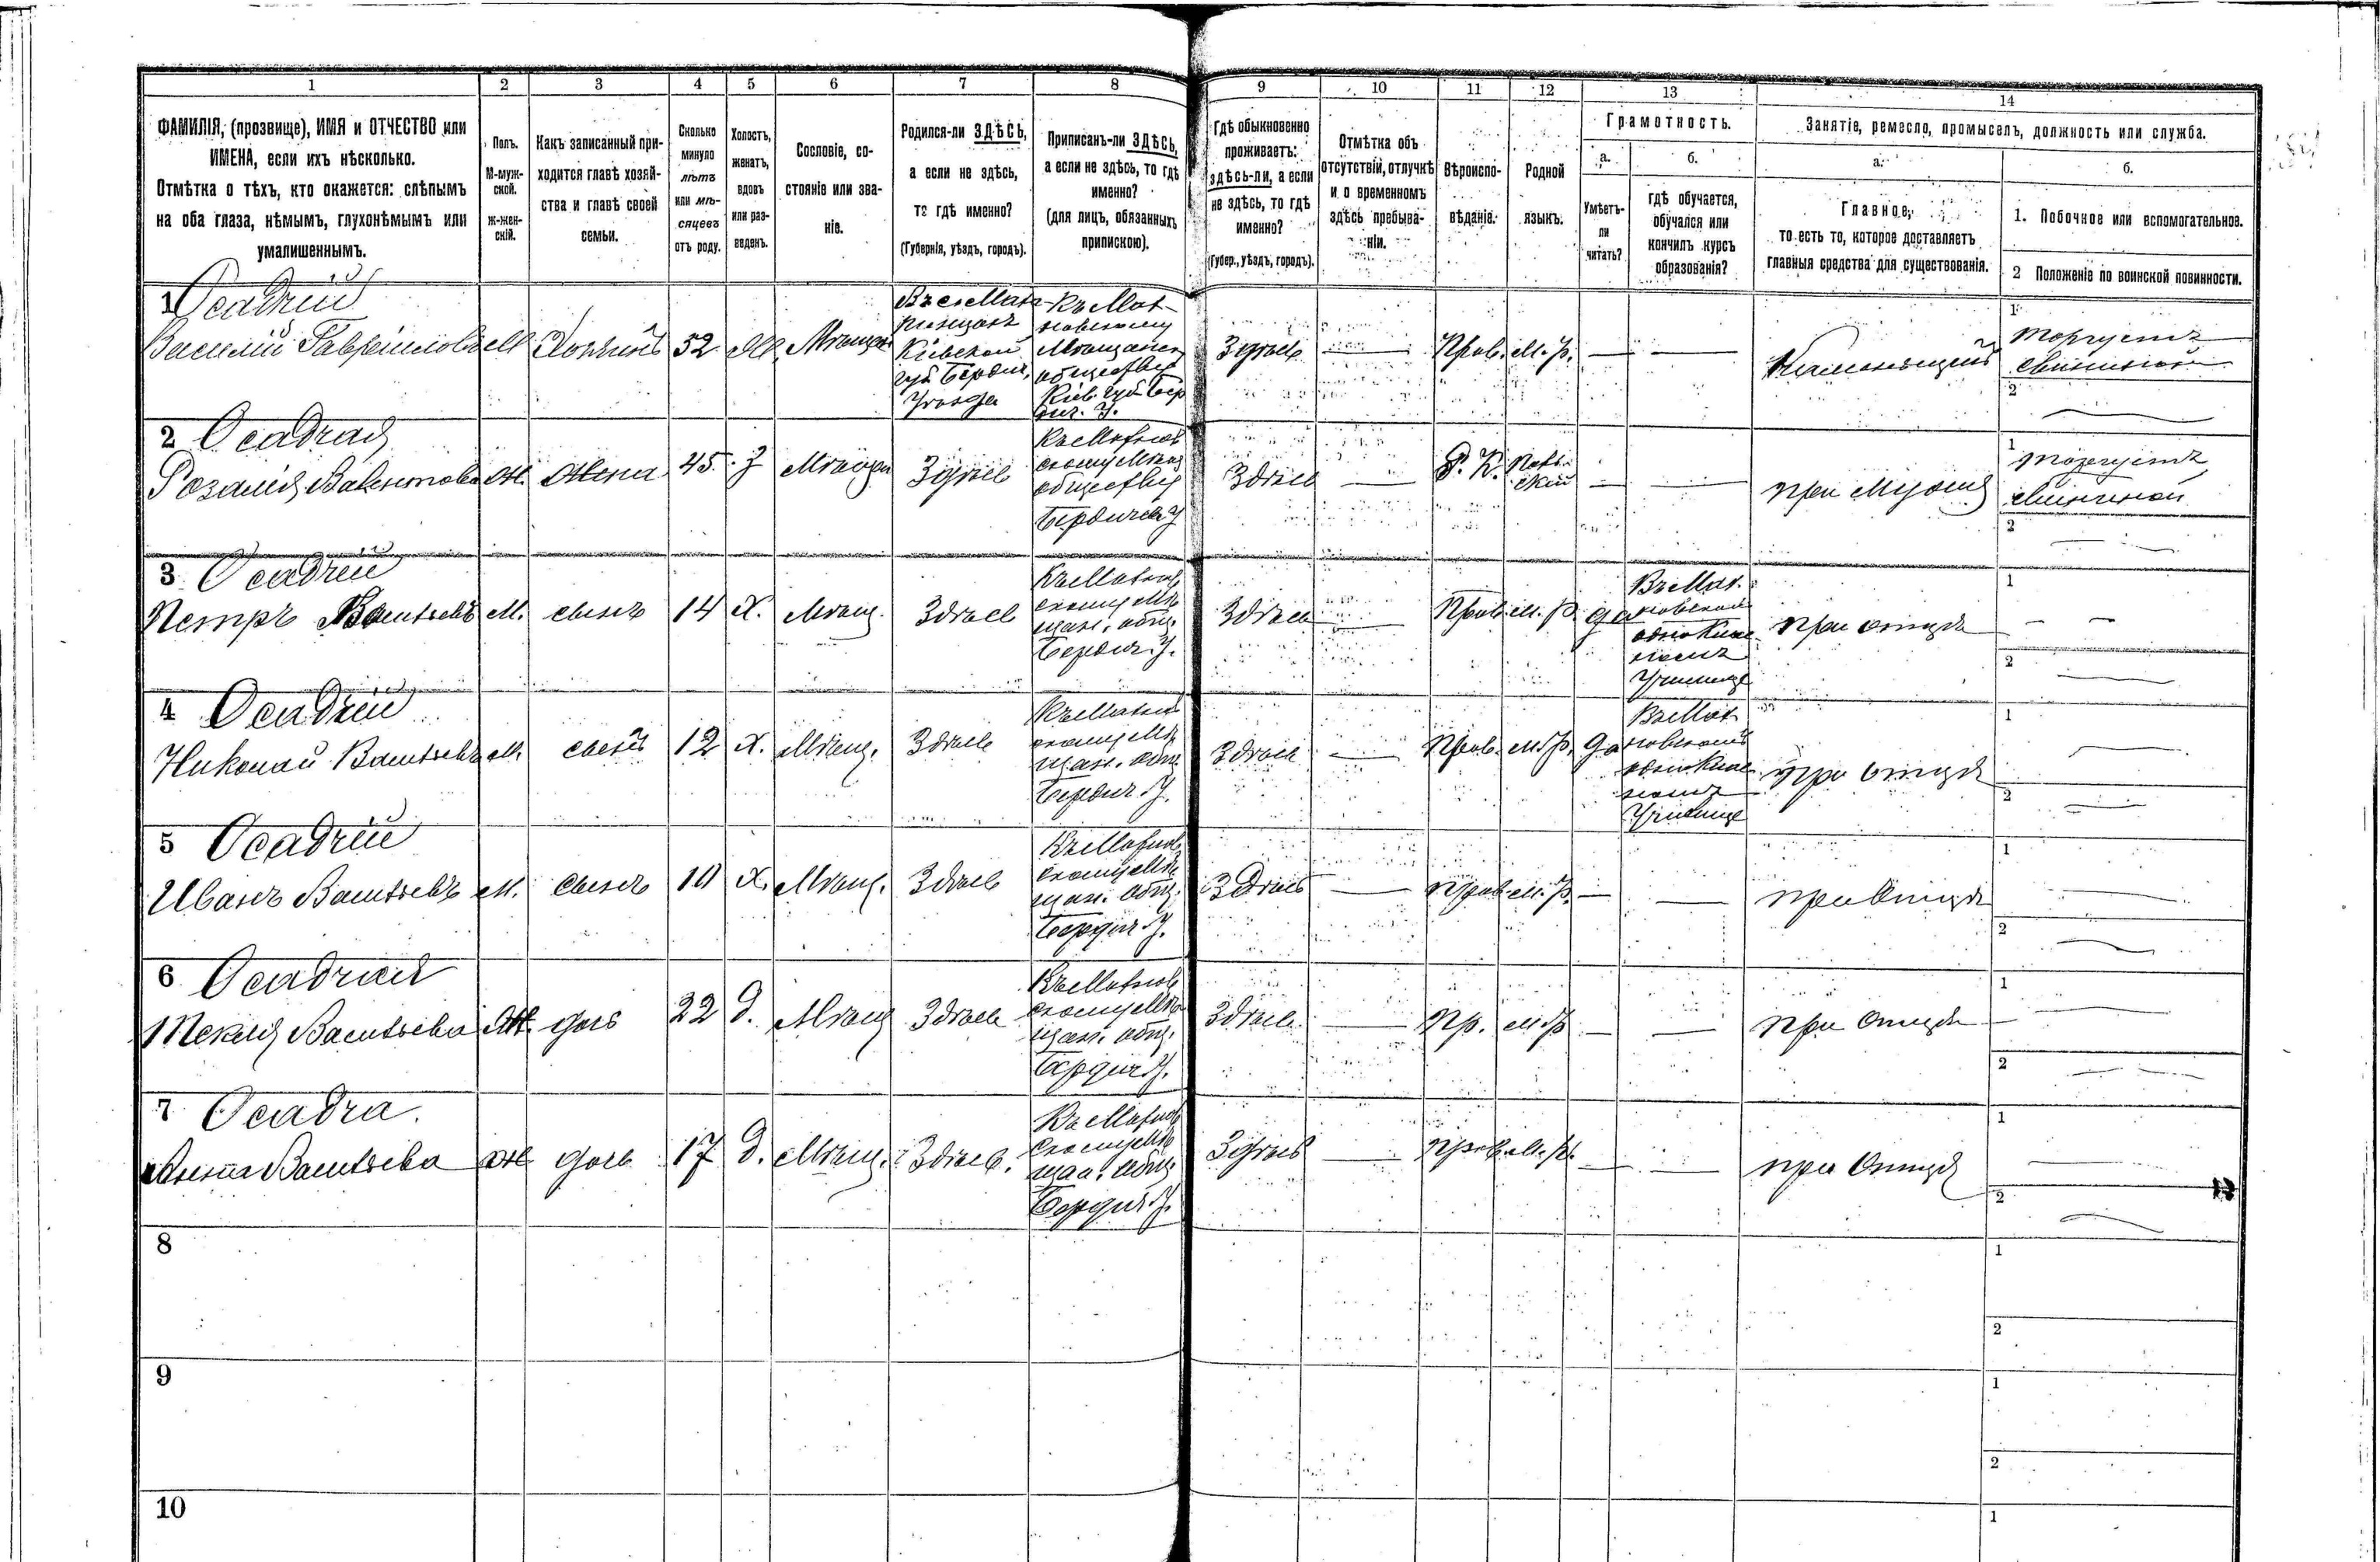 1 2 3 4 5 6 7 8 9 10 11 12 13 14
ФАМИЛІЯ, (прозвище), ИМЯ и ОТЧЕСТВО или
ИМЕНА, если ихъ нѣсколько.
Отмѣтка о тѣхъ, кто окажется: слѣпымъ
на оба глаза, нѣмымъ, глухонѣмымъ или
умалишеннымъ.
Полъ.
М-муж-
ской.
ж-жен-
скій.
Какъ записанный при-
ходится главѣ хозяй-
ства и главѣ своей
семьи.
Сколько
минуло
лѣтъ
или мѣ-
сяцевъ
отъ роду.
Холостъ,
женатъ,
вдовъ
или раз-
веденъ.
Сословіе, со-
стояніе или зва-
ніе.
Родился-ли ЗДѢСЬ,
а если не здѣсь,
то гдѣ именно?
(Губернія, уѣздъ, городъ).
Приписанъ-ли ЗДѢСЬ,
а если не здѣсь, то гдѣ
именно?
(для лицъ, обязанныхъ
припискою).
Гдѣ обыкновенно
проживаетъ:
здѣсь-ли, а если
не здѣсь, то гдѣ
именно?
(Губер., уѣздъ, городъ).
Отмѣтка объ
отсутствіи, отлучкѣ
и о временномъ
здѣсь пребыва-
ніи.
Вѣроиспо-
вѣданіе.
Родной
языкъ.
Грамотность.
а.
Умѣетъ-
ли
читать?
б.
гдѣ обучается,
обучался или
кончилъ курсъ
образованія?
Занятіе, ремесло, промыселъ, должность или служба.
а.
Главное,
то есть то, которое доставляетъ
главныя средства для существованія.
б.
1. Побочное или вспомогательное.
2 Положеніе по воинской повинности.
1 Осадчій
Василій М Хозяинъ 52 Мѣщан
Кіевской
Уѣзда
Мѣщанск
обществу
Здѣсь — Прав. М. Р. — —
1 торгуетъ
свининой
2
2 Осадчая
Розалія Ж. Жена 45 З Мѣщан Здѣсь
обществу
Бердичев У
Здѣсь — Р. К. — — при мужѣ
1 торгуетъ
свининой
2
3 Осадчій
Петръ Васильевъ М. сынъ 14 Х. Мѣщ. Здѣсь
щан. общ.
Бердич. У.
Здѣсь — Прав. М. Р. да
Училище
при отцѣ
1 — —
2
4 Осадчій
Николай Васильевъ М. сынъ 12 Х. Мѣщ. Здѣсь
щан. общ.
Бердич. У.
Здѣсь — Прав. М. Р. да
Училище
при отцѣ
1
2
5 Осадчій
Иванъ Васильевъ М. сынъ 10 Х. Мѣщ. Здѣсь
щан. общ.
Бердич. У.
Здѣсь — Прав. М. Р. — — при Отцѣ
1
2
6 Осадчая
Текля Васильева Ж. дочь 22 Д. Мѣщ Здѣсь
щан. общ.
Бердич. У.
Здѣсь — Пр. М. Р — — при Отцѣ
1
2
7 Осадча.
Анна Васильева Ж дочь 17 Д. Мѣщ. Здѣсь.
щан. общ.
Бердич. У.
Здѣсь — Прав. М. Р. — — при Отцѣ
1
2
8
1
2
9
1
2
10
1